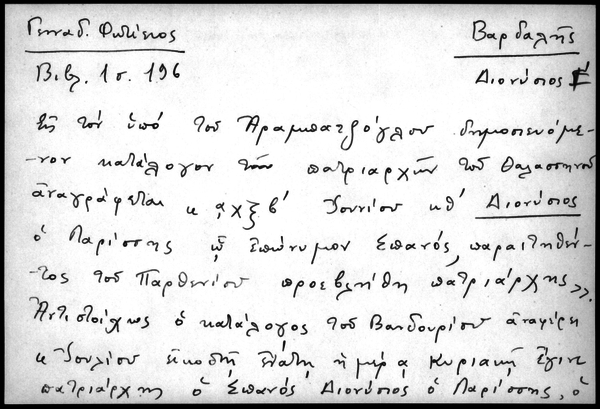 Γενναδ. Φωτίειος Βαρδαλῆς
Βιβλ. 1 σ. 196 Διονύσιος Γ΄
Εἰς τόν ὑπό τοῦ Ἀραμπατζόγλου δημοσιευόμε-
-νον κατάλογον τῶν πατριαρχῶν τοῦ Θαλασσηνοῦ
ἀναγράφεται κ ͵αχξβ΄ Ἰουνίου κθ΄ Διονύσιος
ὁ Λαρίσσης ᾧ ἐπώνυμον Σπανός, παραιτηθέν-
-τος τοῦ Παρθενίου προεβλήθη πατριάρχης».
Ἀντιστοίχως ὁ κατάλογος τοῦ Βανδουρίου ἀναφέρει
κ Ἰουλίου εἰκοστῇ ἐνάτῃ ἡμέρᾳ Κυριακῇ ἔγινε
πατριάρχης ὁ Σπανός Διονύσιος ὁ Λαρίσσης, ὁ